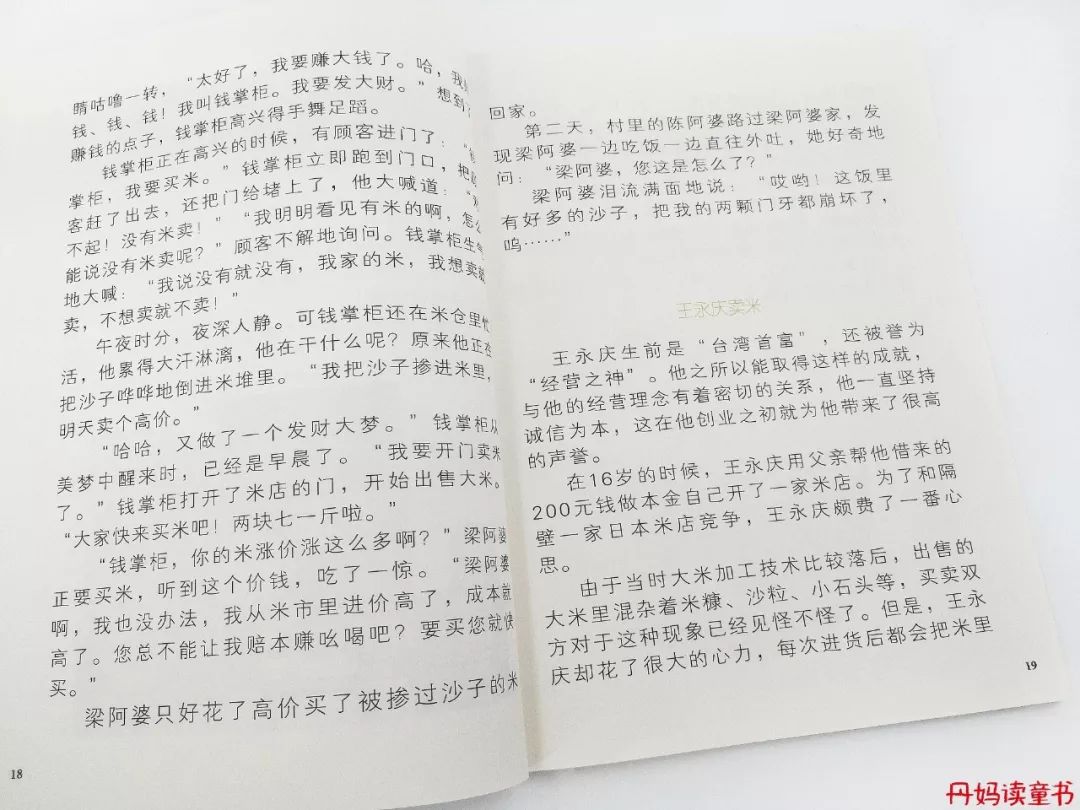 睛咕噜一转，“太好了，我要赚大钱了。哈，我
钱、钱、钱！我叫钱掌柜。我要发大财。”想到
赚钱的点子，钱掌柜高兴得手舞足蹈。
钱掌柜正在高兴的时候，有顾客进门了：“
掌柜，我要买米。”钱掌柜立即跑到门口，把
客赶了出去，还把门给堵上了，他大喊道：“
不起！没有米卖！”“我明明看见有米的啊，怎么
能说没有米卖呢？”顾客不解地询问。钱掌柜生气
地大喊：“我说没有就没有，我家的米，我想卖就
卖，不想卖就不卖！”
午夜时分，夜深人静。可钱掌柜还在米仓里忙
活，他累得大汗淋漓，他在干什么呢？原来他正在
把沙子哗哗地倒进米堆里。“我把沙子掺进米里，
明天卖个高价。”
“哈哈，又做了一个发财大梦。”钱掌柜从
美梦中醒来时，已经是早晨了。“我要开门卖米
了。”钱掌柜打开了米店的门，开始出售大米。
“大家快来买米吧！两块七一斤啦。”
“钱掌柜，你的米涨价涨这么多啊？”梁阿婆
正要买米，听到这个价钱，吃了一惊。“梁阿婆
啊，我也没办法，我从米市里进价高了，成本就
高了。您总不能让我赔本赚吆喝吧？要买您就快
买。”
梁阿婆只好花了高价买了被掺过沙子的米
18
回家。
第二天，村里的陈阿婆路过梁阿婆家，发
现梁阿婆一边吃饭一边直往外吐，她好奇地
问：“梁阿婆，您这是怎么了？”
梁阿婆泪流满面地说：“哎哟！这饭里
有好多的沙子，把我的两颗门牙都崩坏了，
呜……”
王永庆卖米
王永庆生前是“台湾首富”，还被誉为
“经营之神”。他之所以能取得这样的成就，
与他的经营理念有着密切的关系，他一直坚持
诚信为本，这在他创业之初就为他带来了很高
的声誉。
在16岁的时候，王永庆用父亲帮他借来的
200元钱做本金自己开了一家米店。为了和隔
壁一家日本米店竞争，王永庆颇费了一番心
思。
由于当时大米加工技术比较落后，出售的
大米里混杂着米糠、沙粒、小石头等，买卖双
方对于这种现象已经见怪不怪了。但是，王永
庆却花了很大的心力，每次进货后都会把米里
19
丹妈读童书